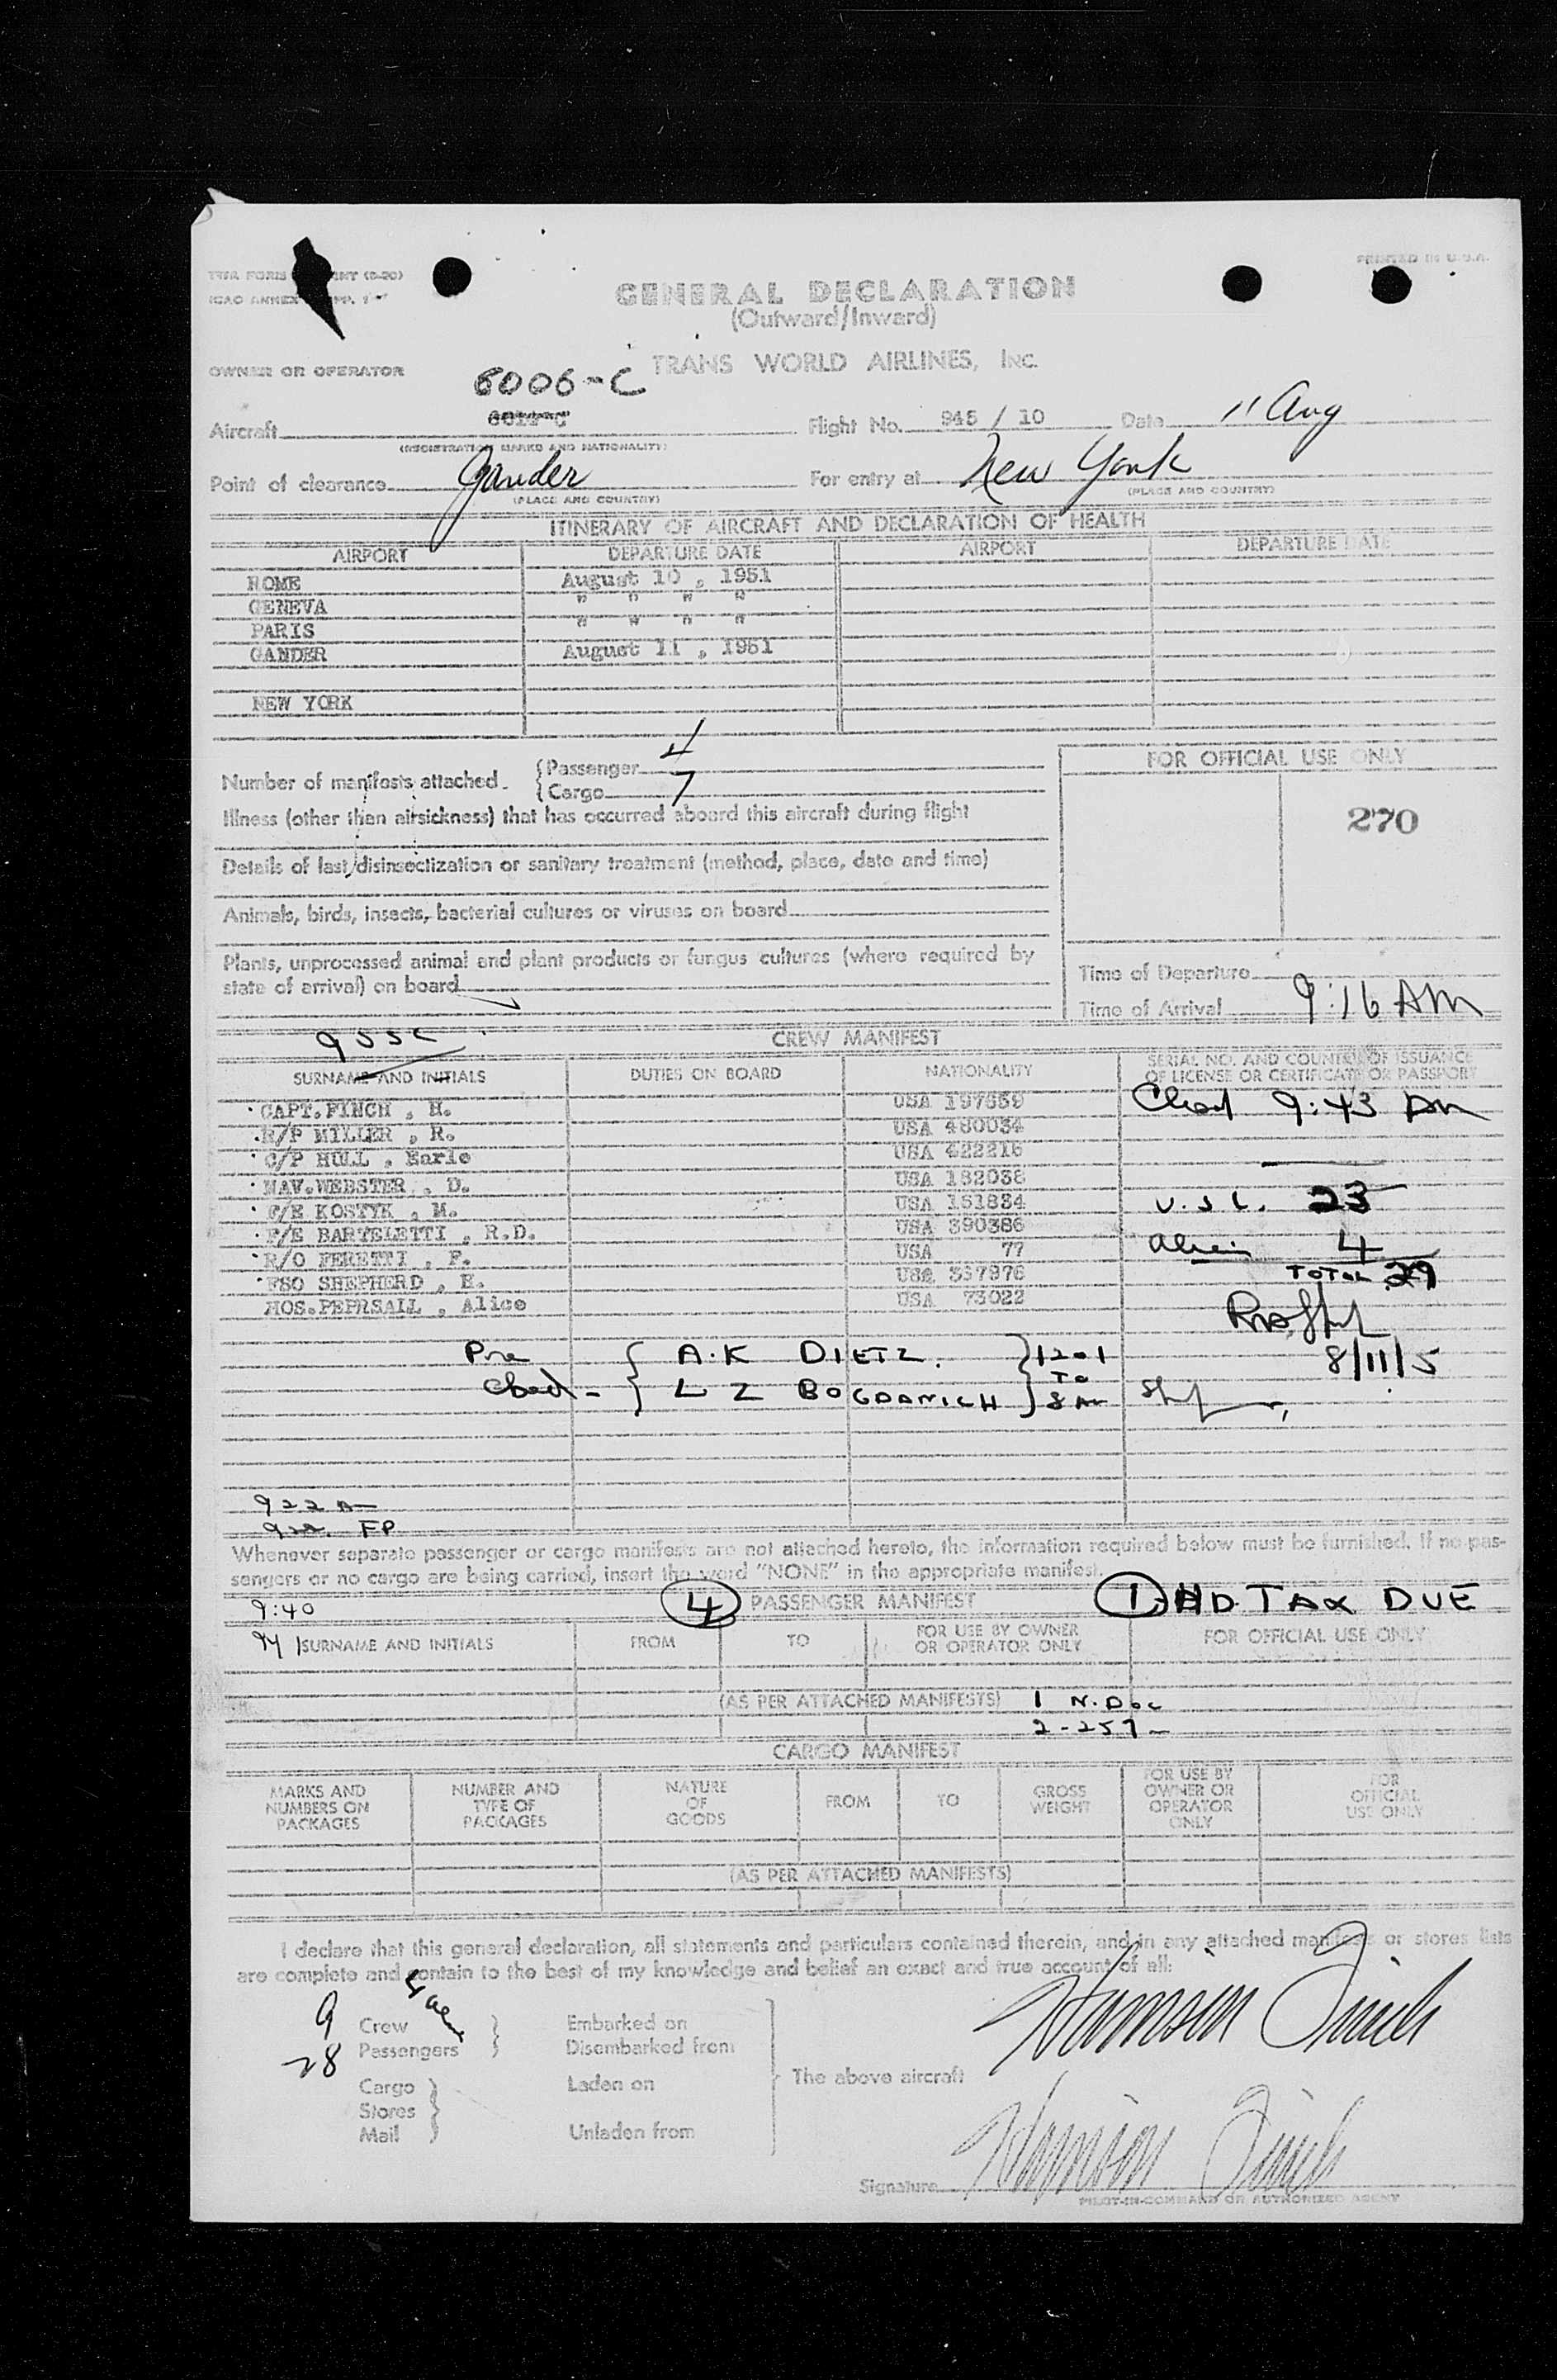 PRINTED IN U.S.A.
GENERAL DECLARATION
(Outward/Inward)
OWNER OR OPERATOR TRANS WORLD AIRLINES, INC.
6006-C
Aircraft Flight No. 945 / 10 Date 11 Aug
(REGISTRATION MARKS AND NATIONALITY)
Point of clearance Gander For entry at New York
(PLACE AND COUNTRY) (PLACE AND COUNTRY)
ITINERARY OF AIRCRAFT AND DECLARATION OF HEALTH
AIRPORT DEPARTURE DATE AIRPORT DEPARTURE DATE
ROME August 10 , 1951
GENEVA " " " "
PARIS " " " "
GANDER August 11 , 1951
NEW YORK
Number of manifests attached {Passenger 4
{Cargo 7
FOR OFFICIAL USE ONLY
270
Illness (other than airsickness) that has occurred aboard this aircraft during flight
Details of last disinsectization or sanitary treatment (method, place, date and time)
Animals, birds, insects, bacterial cultures or viruses on board
Plants, unprocessed animal and plant products or fungus cultures (where required by
state of arrival) on board
Time of Departure
Time of Arrival 9:16 AM
CREW MANIFEST
SURNAME AND INITIALS DUTIES ON BOARD NATIONALITY SERIAL NO. AND COUNTRY OF ISSUANCE
OF LICENSE OR CERTIFICATE OR PASSPORT
CAPT.FINCH , H. USA 197659 9:43
R/P MILLER , R. USA 480034
C/P HULL , Earle USA 422216
NAV.WEBSTER , D. USA 182038
F/E KOSTYK , M. USA 151834 U.S.C. 23
F/E BARTELETTI , R.D. USA 390386
R/O FERETTI , F. USA 77 Alien 4
FSO SHEPHERD , H. USA 357976 TOTAL 29
HOS.PEPRSALL , Alice USA 73022
8/11/5
A.K DIETZ. 1201
TO
L Z BOGDANICH 8 AM
922 A
922 FP
Whenever separate passenger or cargo manifests are not attached hereto, the information required below must be furnished. If no pas-
sengers or no cargo are being carried, insert the word "NONE" in the appropriate manifest.
9:40 4 PASSENGER MANIFEST 1 HD. TAX DUE
SURNAME AND INITIALS FROM TO FOR USE BY OWNER
OR OPERATOR ONLY FOR OFFICIAL USE ONLY
(AS PER ATTACHED MANIFESTS) 1 N. Doc
2-257
CARGO MANIFEST
MARKS AND
NUMBERS ON
PACKAGES
NUMBER AND
TYPE OF
PACKAGES
NATURE
OF
GOODS
FROM
TO
GROSS
WEIGHT
FOR USE BY
OWNER OR
OPERATOR
ONLY
FOR
OFFICIAL
USE ONLY
(AS PER ATTACHED MANIFESTS)
I declare that this general declaration, all statements and particulars contained therein, and in any attached manifests or stores lists
are complete and contain to the best of my knowledge and belief an exact and true account of all:
9 Crew Embarked on
28 Passengers Disembarked from
Cargo Laden on The above aircraft
Stores
Mail Unladen from
Harrison Finch
Signature Harrison Finch
PILOT-IN-COMMAND OR AUTHORIZED AGENT